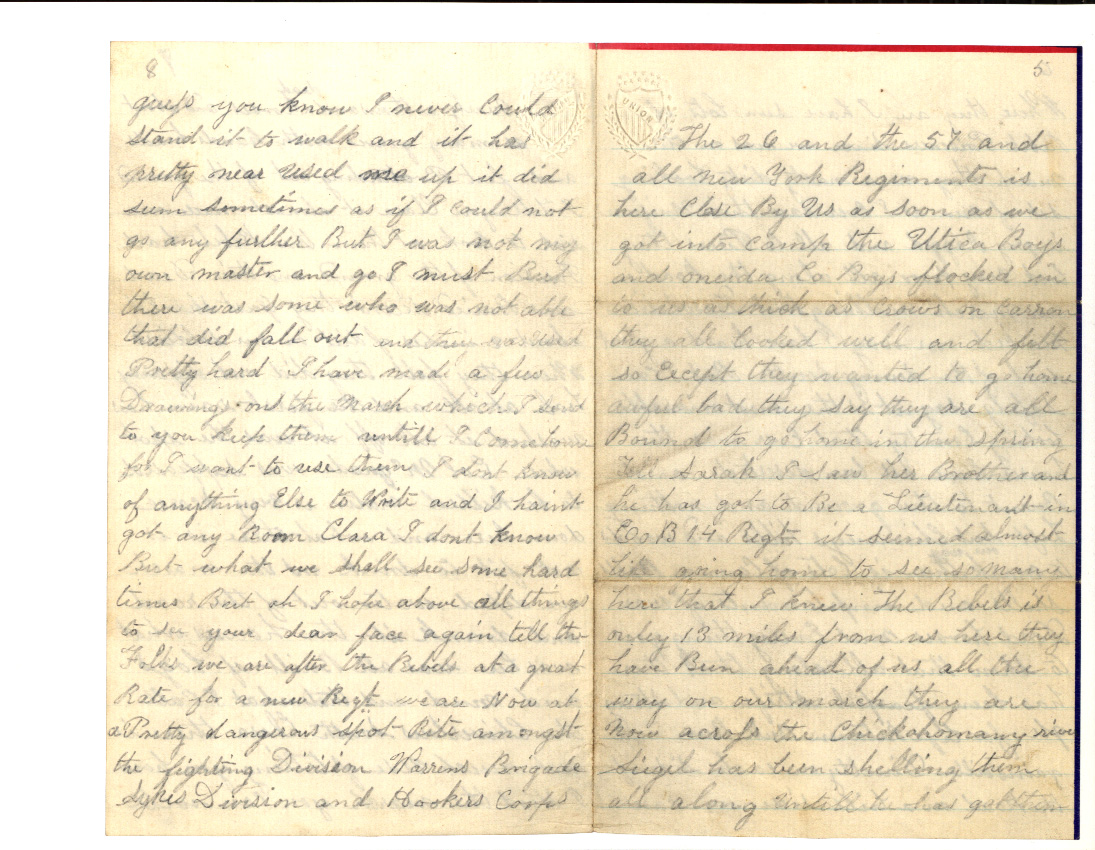 8
guess you know I never Could
stand it to walk and it has
pretty near used me up it did
seem sometimes as if I could not
go any further But I was not my
own master and go I must But
there was some who was not able
that did fall out and they was used
Pretty hard I have made a few
Drawings on the March which I send
to you keep them untill I Come home
for I want to use them I dont know
of anything Else to Write and I haint
got any Room Clara I dont know
But what we shall see some hard
times But oh I hope above all things
to see your dear face again tell the
Folks we are after the Rebels at a great
Rate for a new Regt we are Now at
a Pretty dangerous spot Rite amongst
the fighting Division Warrens Brigade
Sykes Division and Hookers Corps
5
UNION
The 26 and the 57 and
all New York Regiments is
here Close By Us as soon as we
got into camp the Utica Boys
and oneida Co Boys flocked in
to us as thick as Crows on Carrion
they all looked well and felt
so Except they wanted to go home
awful bad they say they are all
Bound to go home in the Spring
Tell Sarah I saw her Brother and
he has got to Be a Lieutenant in
Co B 14 Regt it seemed almost
like going home to see so many
here that I knew The Rebels is
onley 13 miles from us here they
have Been ahead of us all the
way on our march they are
Now across the Chickohomany river
Siegel has been shelling them
all along untill he has got them